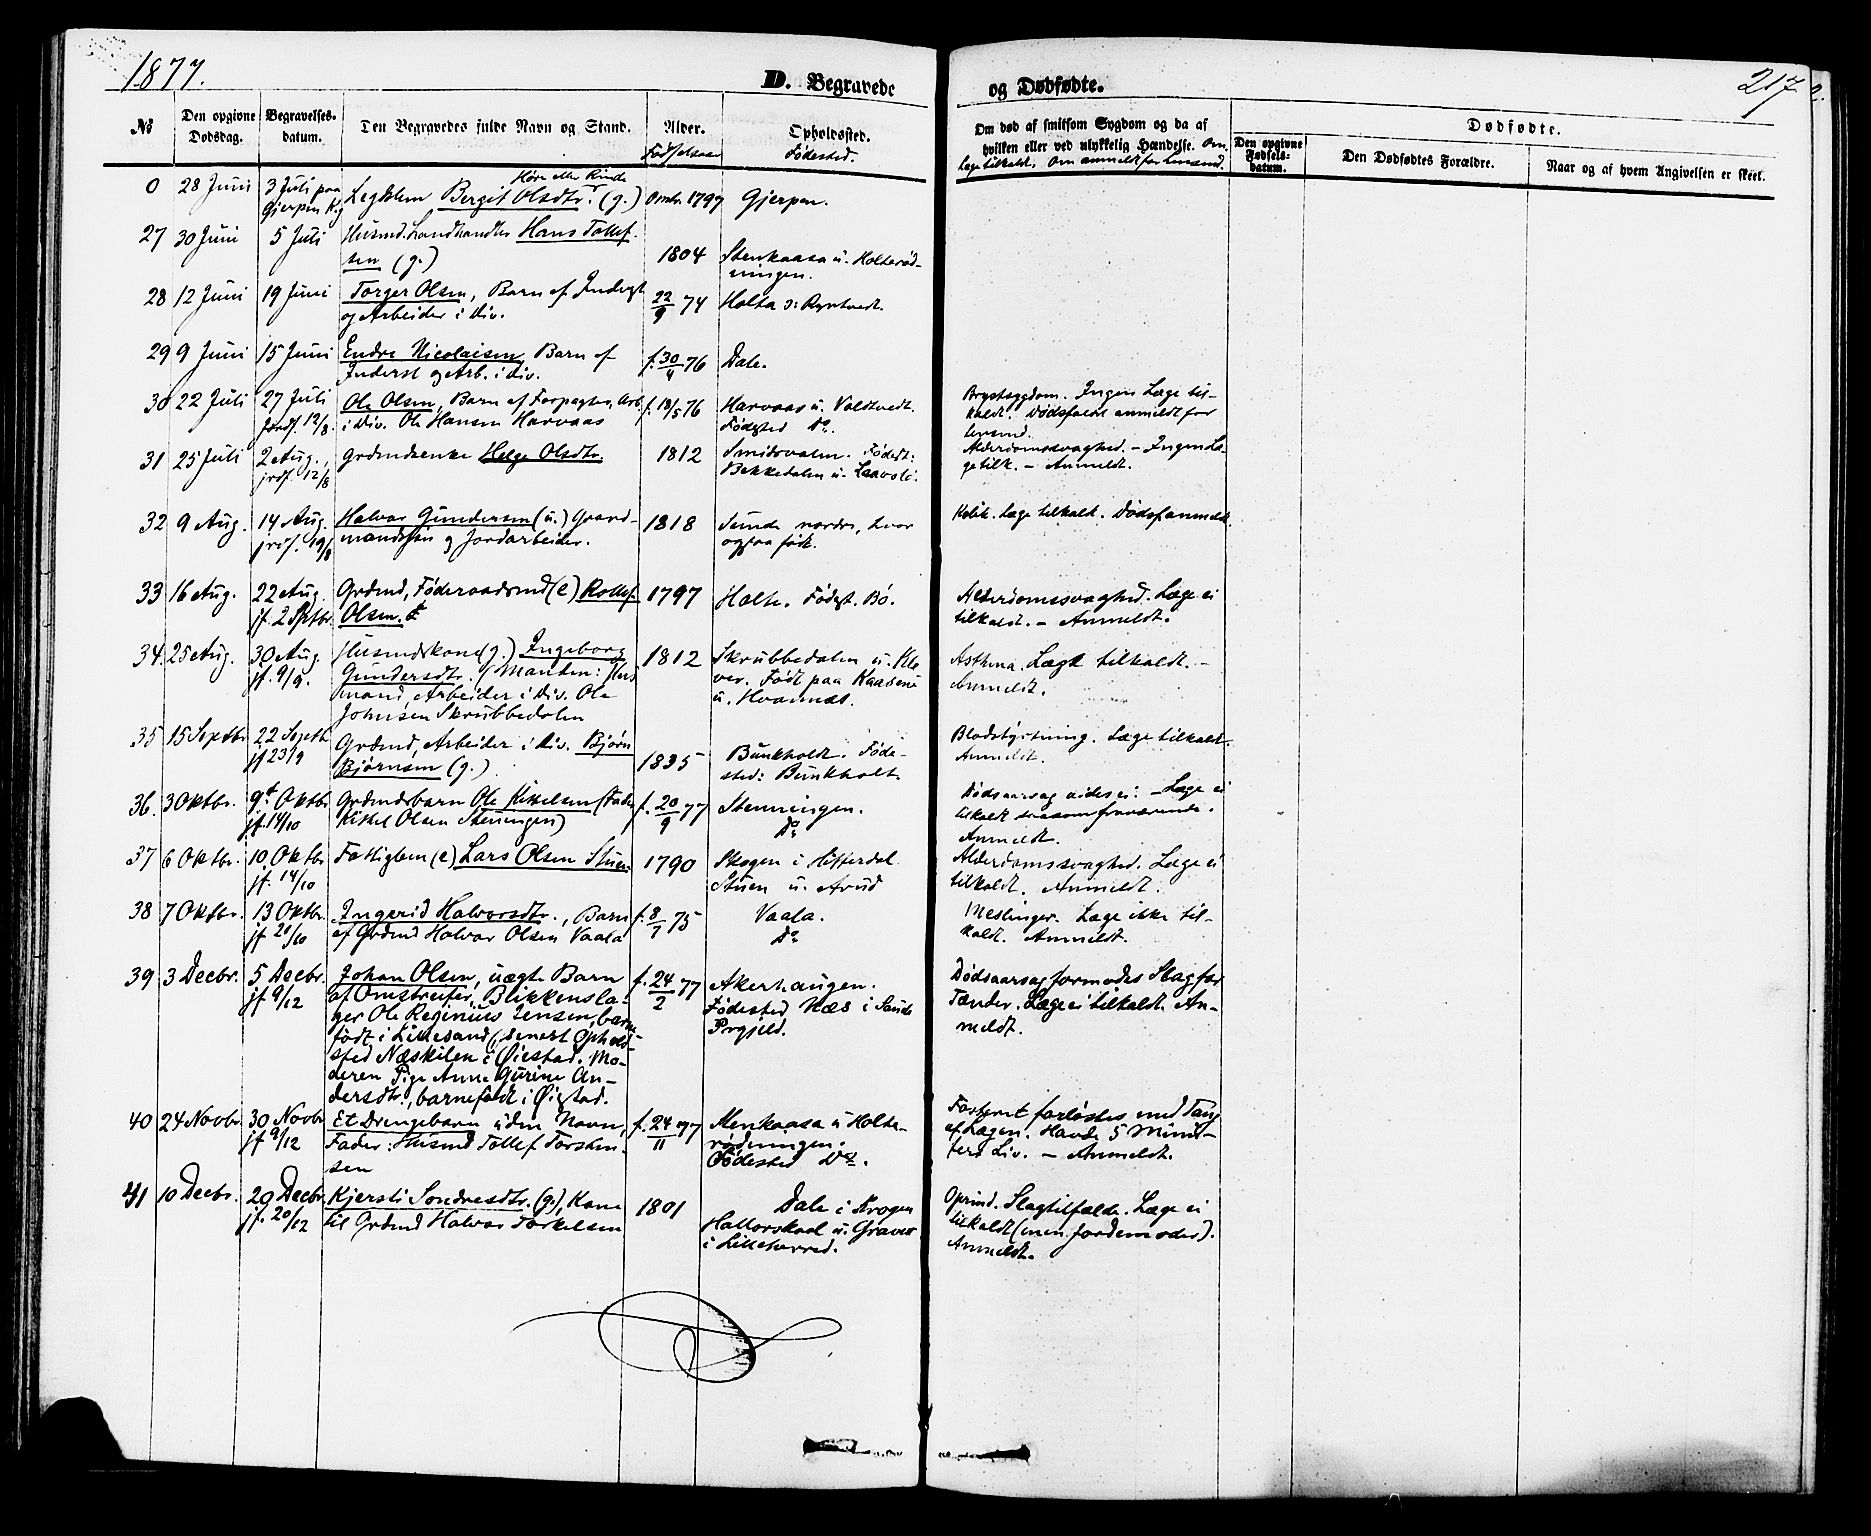 1877.
D. Begravede og Dødfødte.
217
No
Den opgivne Dødsdag.
Begravelses-datum.
Den Begravedes fulde Navn og Stand.
Alder.
Fødselsaar
Opholdssted.
Fødested.
Om død af smitsom Sygdom og da af
hvilken eller ved ulykkelig Hændelse. Om
Læge tilkaldt. Om anmeldt for Lensmd.
Dødfødte.
Den opgivne Fødsels-datum.
Den Dødfødtes Forældre.
Naar og af hvem Angivelsen er skeet.
0 28 Juni 3 Juli paa Gjerpen Kg Legdslem Bergit Olsdtr. (g.) Omtr. 1797 Gjerpen.
27 30 Juni 5 Juli Husmd. Landhandler Hans Tollef-
sen (g.) 1804 Stenkaasa u. Holterød-
ningen.
28 12 Juni 19 Juni Torger Olsen, Barn af Inderst
og Arbeider i Div. 22/9 74 Holta
29 9 Juni 15 Juni Endre Nicolaisen, Barn af
Inderst og Arb. i Div. f. 30/4 76 Dale.
30 22 Juli 27 Juli Ole Olsen, Barn af Forpagter, Arb.
jordf. 12/8. i Div. Ole Hansen Harvaas f. 18/5 76 Harvaas u. Valdtvedt.
Fødested Do.
Brystsygdom. Ingen Læge til-
kaldt. Dødsfaldet anmeldt for
Lensmd.
31 25 Juli 2 Aug. jrdf. 12/8 Grdmdsenke Helge Olsdtr. 1812 Smidsvalen. Fødest:
Bekkedalen u. Laavsli.
Alderdomssvaghed. - Ingen Læ-
getilk. - Anmeldt.
32 9 Aug. 14 Aug. jrdf. 19/8 Halvor Gundersen (u.) Gaard-
mandssøn og Jordarbeider. 1818 Sunde nordre, hvor
ogsaa født.
Kolik. Læge tilkaldt. Dødsf anmeldt.
33 16 Aug. 22 Aug. jf. 2 Sptbr. Grdmd, Føderaadsmd (e) Rollef
Olsen. 1797 Holte. Fødest. Bø.
Alderdomssvaghed. Læge ei
tilkaldt. - Anmeldt.
34 25 Aug. 30 Aug. jf. 9/9. Husmdskone (g.) Ingeborg
Gundersdtr. / Manden: Hus
mand, Arbeider i Div. Ole
Johnsen Skrubbedalen
1812 Skrubbedalen u. Kle
ver. Født paa Kaasene
u. Hvannæs.
Asthma. Læge tilkaldt. -
Anmeldt.
35 15 Septbr 22 Septb jf 23/9 Grdmd, Arbeider i Div. Bjørn
Bjørnsen (g.) 1835 Bunkholdt. Føde-
sted: Bunkholt
Blodstyrtning. Læge tilkaldt.
Anmeldt.
36. 3 Oktbr. 9de Oktbr jf. 14/10 Grdmdsbarn Ole Kittelsen (Fader
Kittel Olsen Stenningen) f. 20/9 77 Stenningen.
Do
Dødsaarsag vides ei. - Læge ei
tilkaldt saasom fraværende.
Anmeldt.
37 6 Oktbr. 10 Oktbr jf. 14/10 Fattiglem (e) Lars Olsen Stuen. 1790 Skogen i Hitterdal
Stuen u. Arud
Alderdomssvaghed. Læge ei
tilkaldt. Anmeldt.
38 7 Oktbr. 13 Oktbr. jf 21/10 Ingerid Halvorsdtr., Barn
af Grdmd Halvor Olsen Vaala f. 8/7 75 Vaala.
Do
Meslinger. Læge ikke til-
kaldt. Anmeldt.
39 3 Decbr. 5 Decbr. jf 9/12 Johan Olsen, uægte Barn
af Omstreifer, Blikkensla-
ger Ole Reginius Jensen, barne
født i Lillesand (, senest Opholds-
sted Næskilen i Øiestad. Mo-
deren Pige Anne Gurine An-
dersdtr., barnefødt i Øiestad.
f. 24/2 77 Akerhaugen.
Fødested Næs i Sande
Prgjeld.
Dødsaarsag formodes Slag for
Tænder. Læge ei tilkaldt. An-
meldt.
40 24 Novbr 30 Novbr jf 9/12 Et Drengebarn uden Navn,
Fader: Husmd Tollef Torsten-
sen
f. 24/11 77 Stenkaasa u Holte-
rødningen.
Fødested Do.
Fosteret forløstes med Tang
af Lægen. Havde 5 Minut-
ters Liv. - Anmeldt.
41 10 Decbr. 20 Decbr. jf. 20/12 Kjersti Sondresdtr. (g.), Kone
til Grdmd Halvor Torkelsen 1801 Dale i Skogen
Hallorskaal u. Graver
i Lilleherred.
Oprind. Slagtilfælde. Læge ei
tilkaldt (men fordem oder).
Anmeldt.